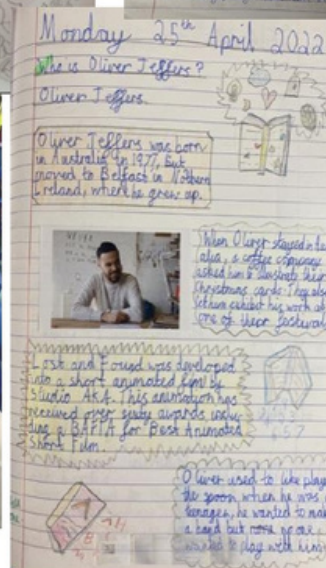 Monday 25th April 2022
Who is Oliver Jeffers?
Oliver Jeffers.
Oliver Jeffers was born
in Australia in 1977, but
moved to Belfast in Nothern
Ireland, where he grew up.
When Oliver stayed in
a coffee company
asked him to illustrate their
Christmas cards. They also
let him exhibit his work at
one of their festivals
Lost and Found was developed
into a short animated film by
Studio AKA. This animation has
received over sixty awards, inclu-
ding a BAFTA for Best Animated
Short Film.
Oliver used to like playing
the spoon when he was
teenager, he wanted to make
a band but no one
wanted to play with him